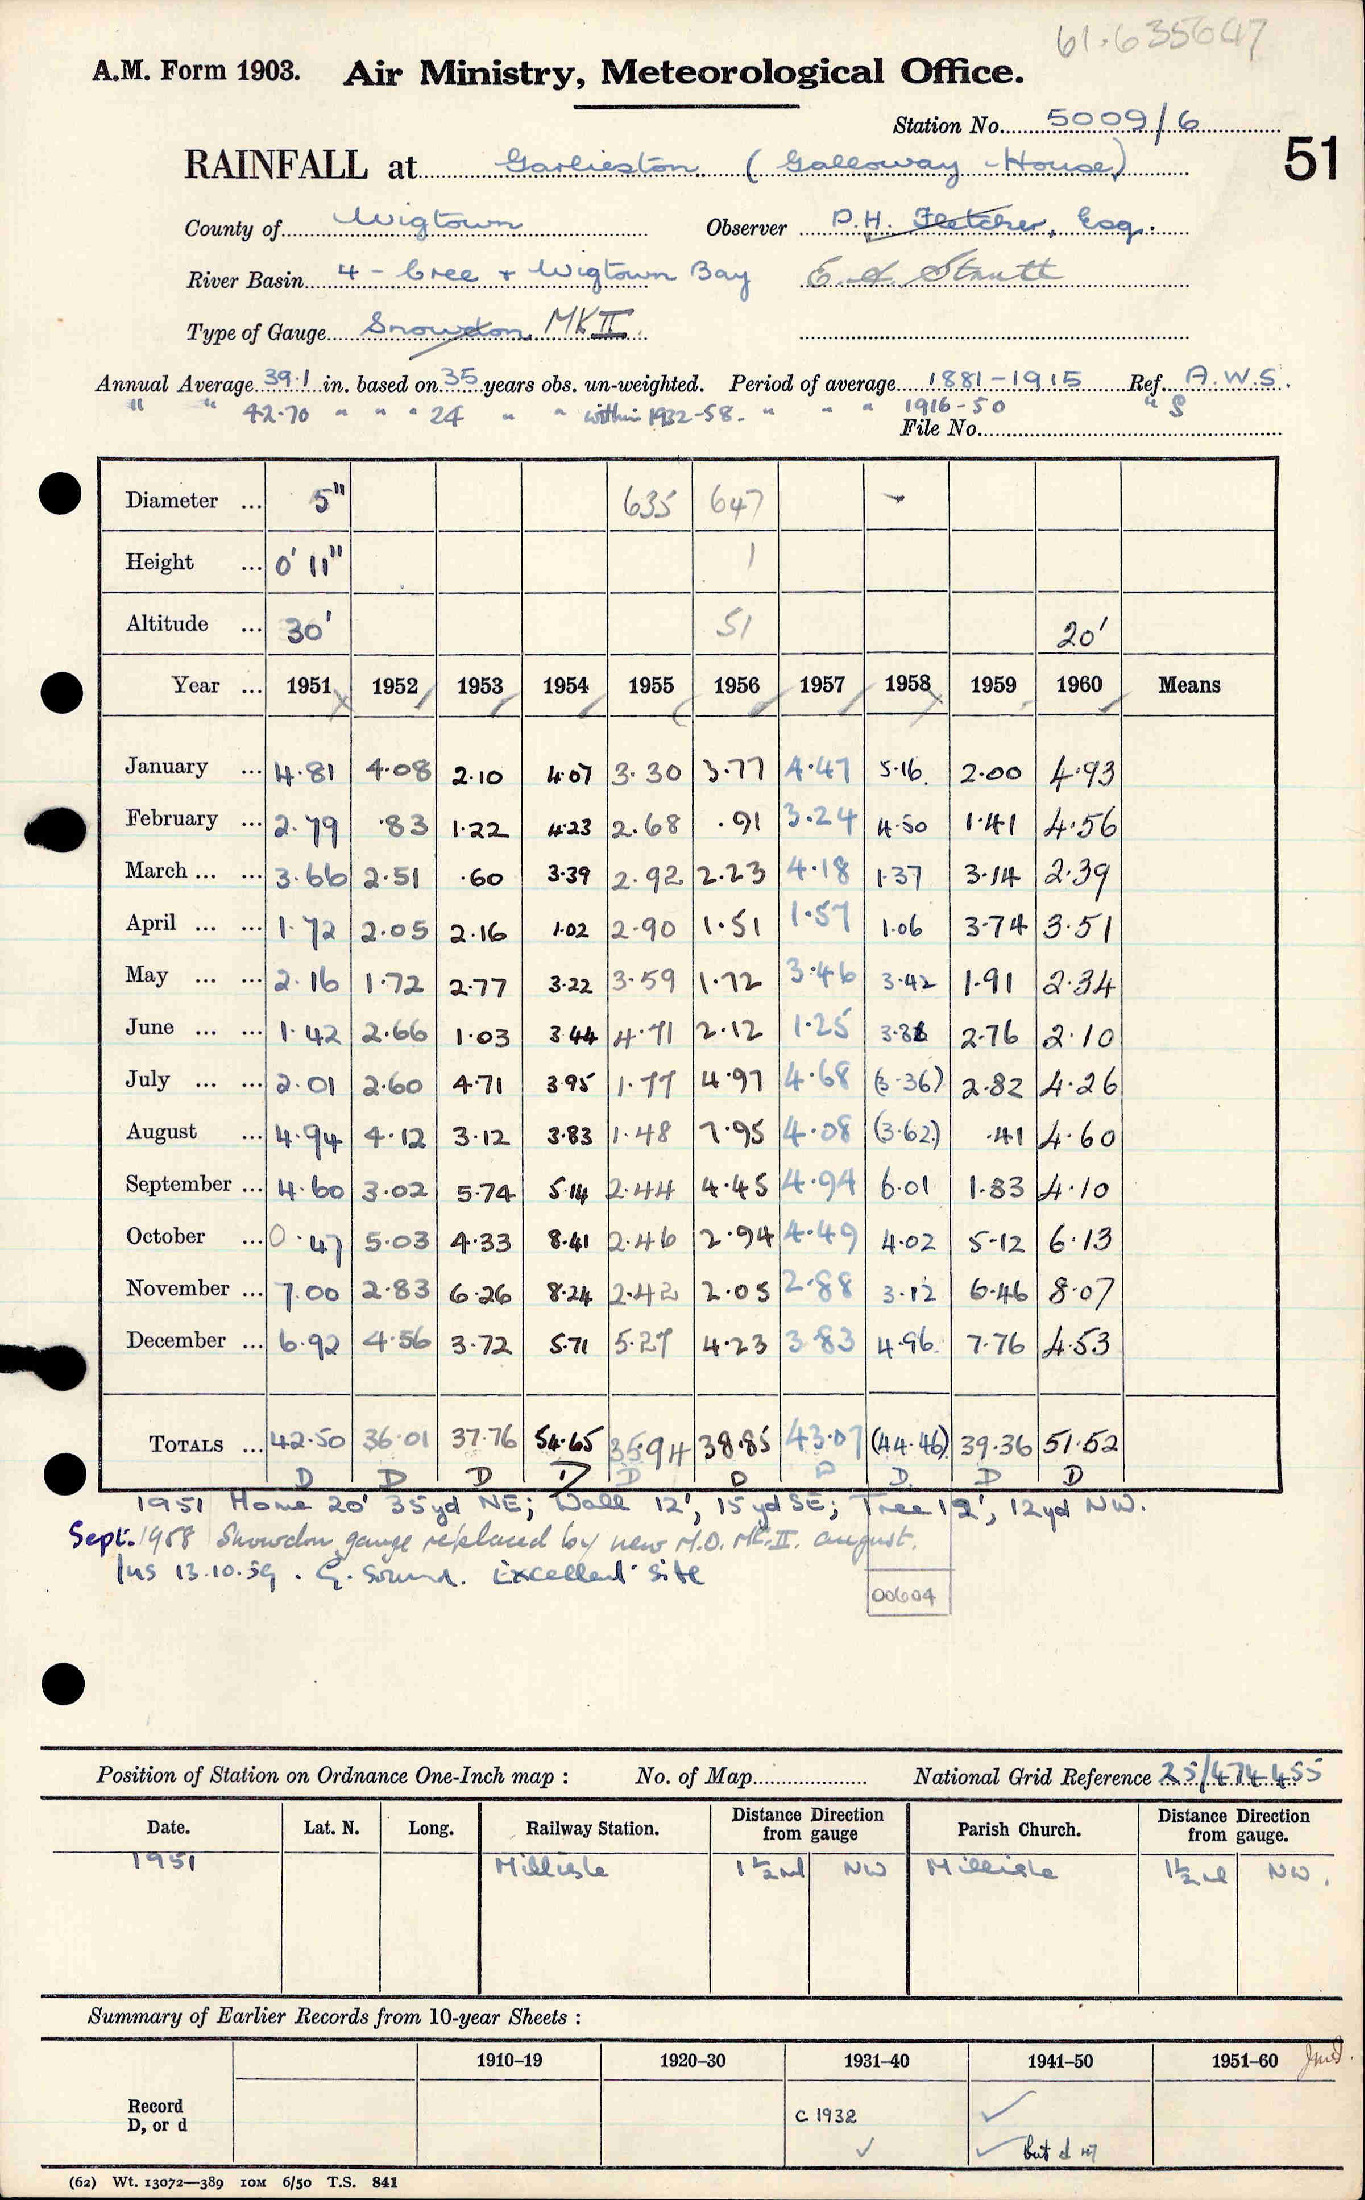 61.635647
A.M. Form 1903. Air Ministry, Meteorological Office.
Station No. 5009/6
51
RAINFALL at Garlieston (Galloway House)
County of Wigtown Observer P.H. Fletcher, Esq.
River Basin 4 - Cree + Wigtown Bay E A Strutt
Type of Gauge Snowdon MK II
Annual Average 39.1 in. based on 35 years obs. un-weighted. Period of average 1881-1915 Ref. A.W.S.
" " 42.70 " " " 24 " " within 1932-58. " " " 1916-50 " S
File No.
Diameter ... 5" 635 647
Height ... 0' 11" 1
Altitude ... 30' 51 20'
Year ... 1951 1952 1953 1954 1955 1956 1957 1958 1959 1960 Means
January ... 4.81 4.08 2.10 4.07 3.30 3.77 4.47 5.16 2.00 4.93
February ... 2.79 .83 1.22 4.23 2.68 .91 3.24 4.50 1.41 4.56
March ... ... 3.66 2.51 .60 3.39 2.92 2.23 4.18 1.37 3.14 2.39
April ... ... 1.72 2.05 2.16 1.02 2.90 1.51 1.57 1.06 3.74 3.51
May ... ... 2.16 1.72 2.77 3.22 3.59 1.72 3.46 3.42 1.91 2.34
June ... ... 1.42 2.66 1.03 3.44 4.71 2.12 1.25 2.76 2.10
July ... ... 2.01 2.60 4.71 3.95 1.77 4.97 4.68 (3.36) 2.82 4.26
August ... 4.94 4.12 3.12 3.83 1.48 7.95 4.08 (3.62) .41 4.60
September ... 4.60 3.02 5.74 5.14 2.44 4.45 4.94 6.01 1.83 4.10
October ... 0.47 5.03 4.33 8.41 2.46 2.94 4.49 4.02 5.12 6.13
November ... 7.00 2.83 6.26 8.24 2.42 2.05 2.88 3.12 6.46 8.07
December ... 6.92 4.56 3.72 5.71 5.27 4.23 3.83 4.96 7.76 4.53
TOTALS ... 42.50 36.01 37.76 54.65 35.94 38.85 43.07 (44.46) 39.36 51.52
D D D D D D D D D D
1951 Home 20' 35yd NE; Wall 12', 15yd SE; Tree 12', 12yd NW.
Sept. 1958 Snowdon gauge replaced by new M.O. Mk.II. august.
Ins 13.10.59. G. Sound. Excellent site
00604
Position of Station on Ordnance One-Inch map : No. of Map National Grid Reference 25/474455
Date. Lat. N. Long. Railway Station. Distance Direction from gauge Parish Church. Distance Direction from gauge.
1951 Millisle 1½ml NW Millisle 1½ml NW.
Summary of Earlier Records from 10-year Sheets :
1910-19 1920-30 1931-40 1941-50 1951-60
Record D, or d c 1932 ✓ ✓
✓ but d 47
(62) Wt. 13072—389 10M 6/50 T.S. 841